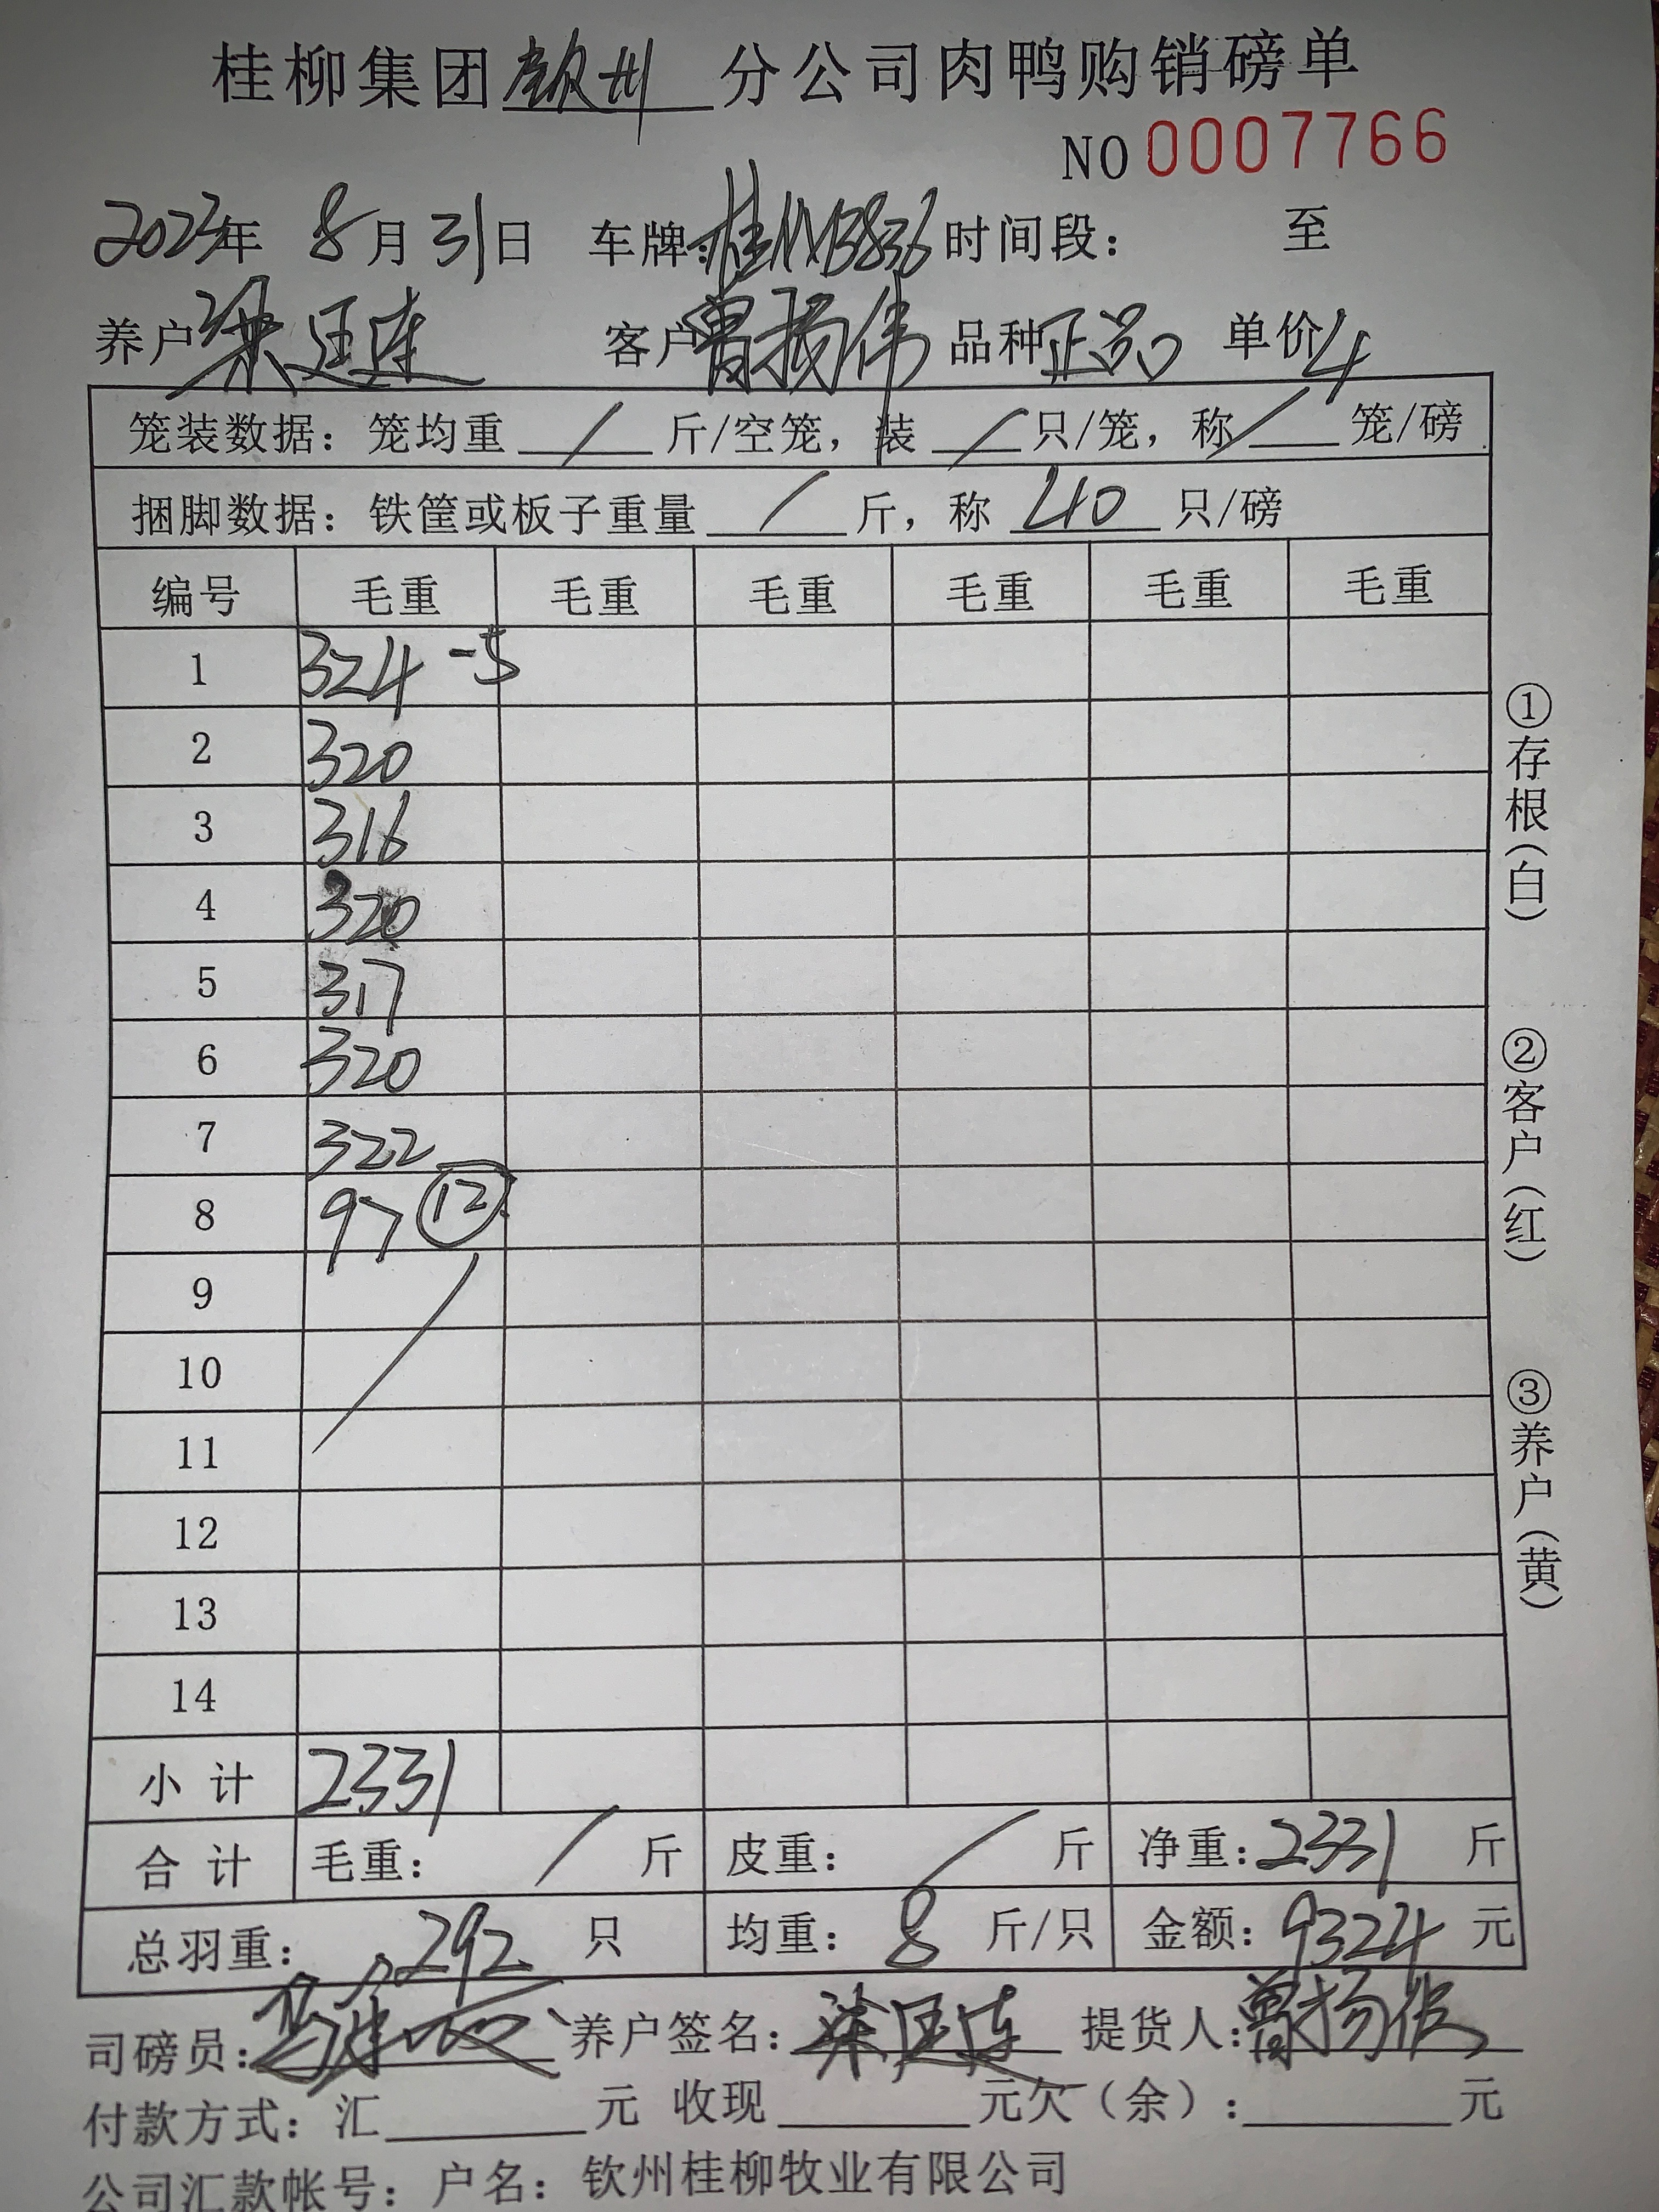 桂柳集团钦州分公司肉鸭购销磅单
NO 0007766
2023年 8月31日 车牌:桂 时间段: 至
养户 梁廷连 客户 曾扬伟 品种 正品 单价 4
笼装数据: 笼均重 / 斤/空笼, 装 / 只/笼, 称 / 笼/磅
捆脚数据: 铁筐或板子重量 / 斤, 称 40 只/磅
编号 毛重 毛重 毛重 毛重 毛重 毛重
1 324 -5
2 320
3 316
4 320
5 317
6 320
7 322
8 97 ⑫
9
10
11
12
13
14
小计 2331
合计 毛重: / 斤 皮重: / 斤 净重: 2331 斤
总羽重: 292 只 均重: 8 斤/只 金额: 9324 元
司磅员: 养户签名: 梁廷连 提货人: 曾扬伟
付款方式: 汇 元 收现 元欠(余): 元
公司汇款帐号: 户名: 钦州桂柳牧业有限公司
①存根(白)
②客户(红)
③养户(黄)